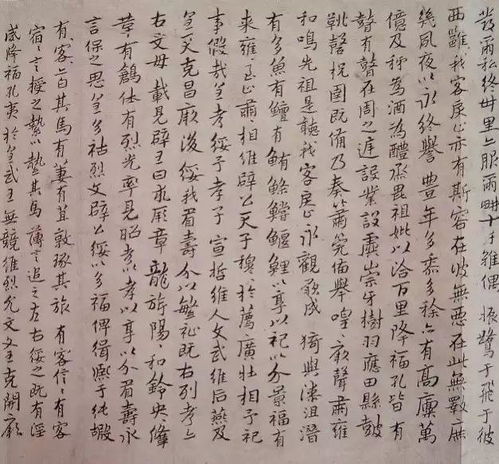 發爾私終卅里亦服爾畊十千維偶 振鷺于飛于彼
西雝我客戾止亦有斯容在彼無惡在此無斁庶
幾夙夜以永終譽 豐年多黍多稌亦有高廩萬
億及秭為酒為醴烝畀祖妣以洽百里降福孔皆 有
瞽有瞽在周之庭設業設虡崇牙樹羽應田縣鼓
鞉磬柷圉既備乃奏簫管備舉喤々厥聲肅雍
和鳴先祖是聽我客戾止永觀厥成 猗與漆沮潛
有多魚有鱣有鮪鰷鱨鰋鯉以享以祀以介景福 有
來雍々至止肅々相維辟公天子穆々於薦廣牡相予祀
事假哉皇考綏予孝子宣哲維人文武維后燕及
皇天克昌厥後綏我眉壽介以繁祉既右列考亦
右文母 載見辟王曰求厥章龍旂陽々和鈴央々鞗
革有鶬休有烈光率見昭考以孝以享以介眉壽永
言保之思皇多祜烈文辟公綏以多福俾緝熙于純嘏
有客々亦白其馬有萋有苴敦琢其旅 有客信々有客
宿々言授之縶以縶其馬薄言追之左右綏之既有淫
威降福孔夷 於皇武王無競維烈允文文王克開厥